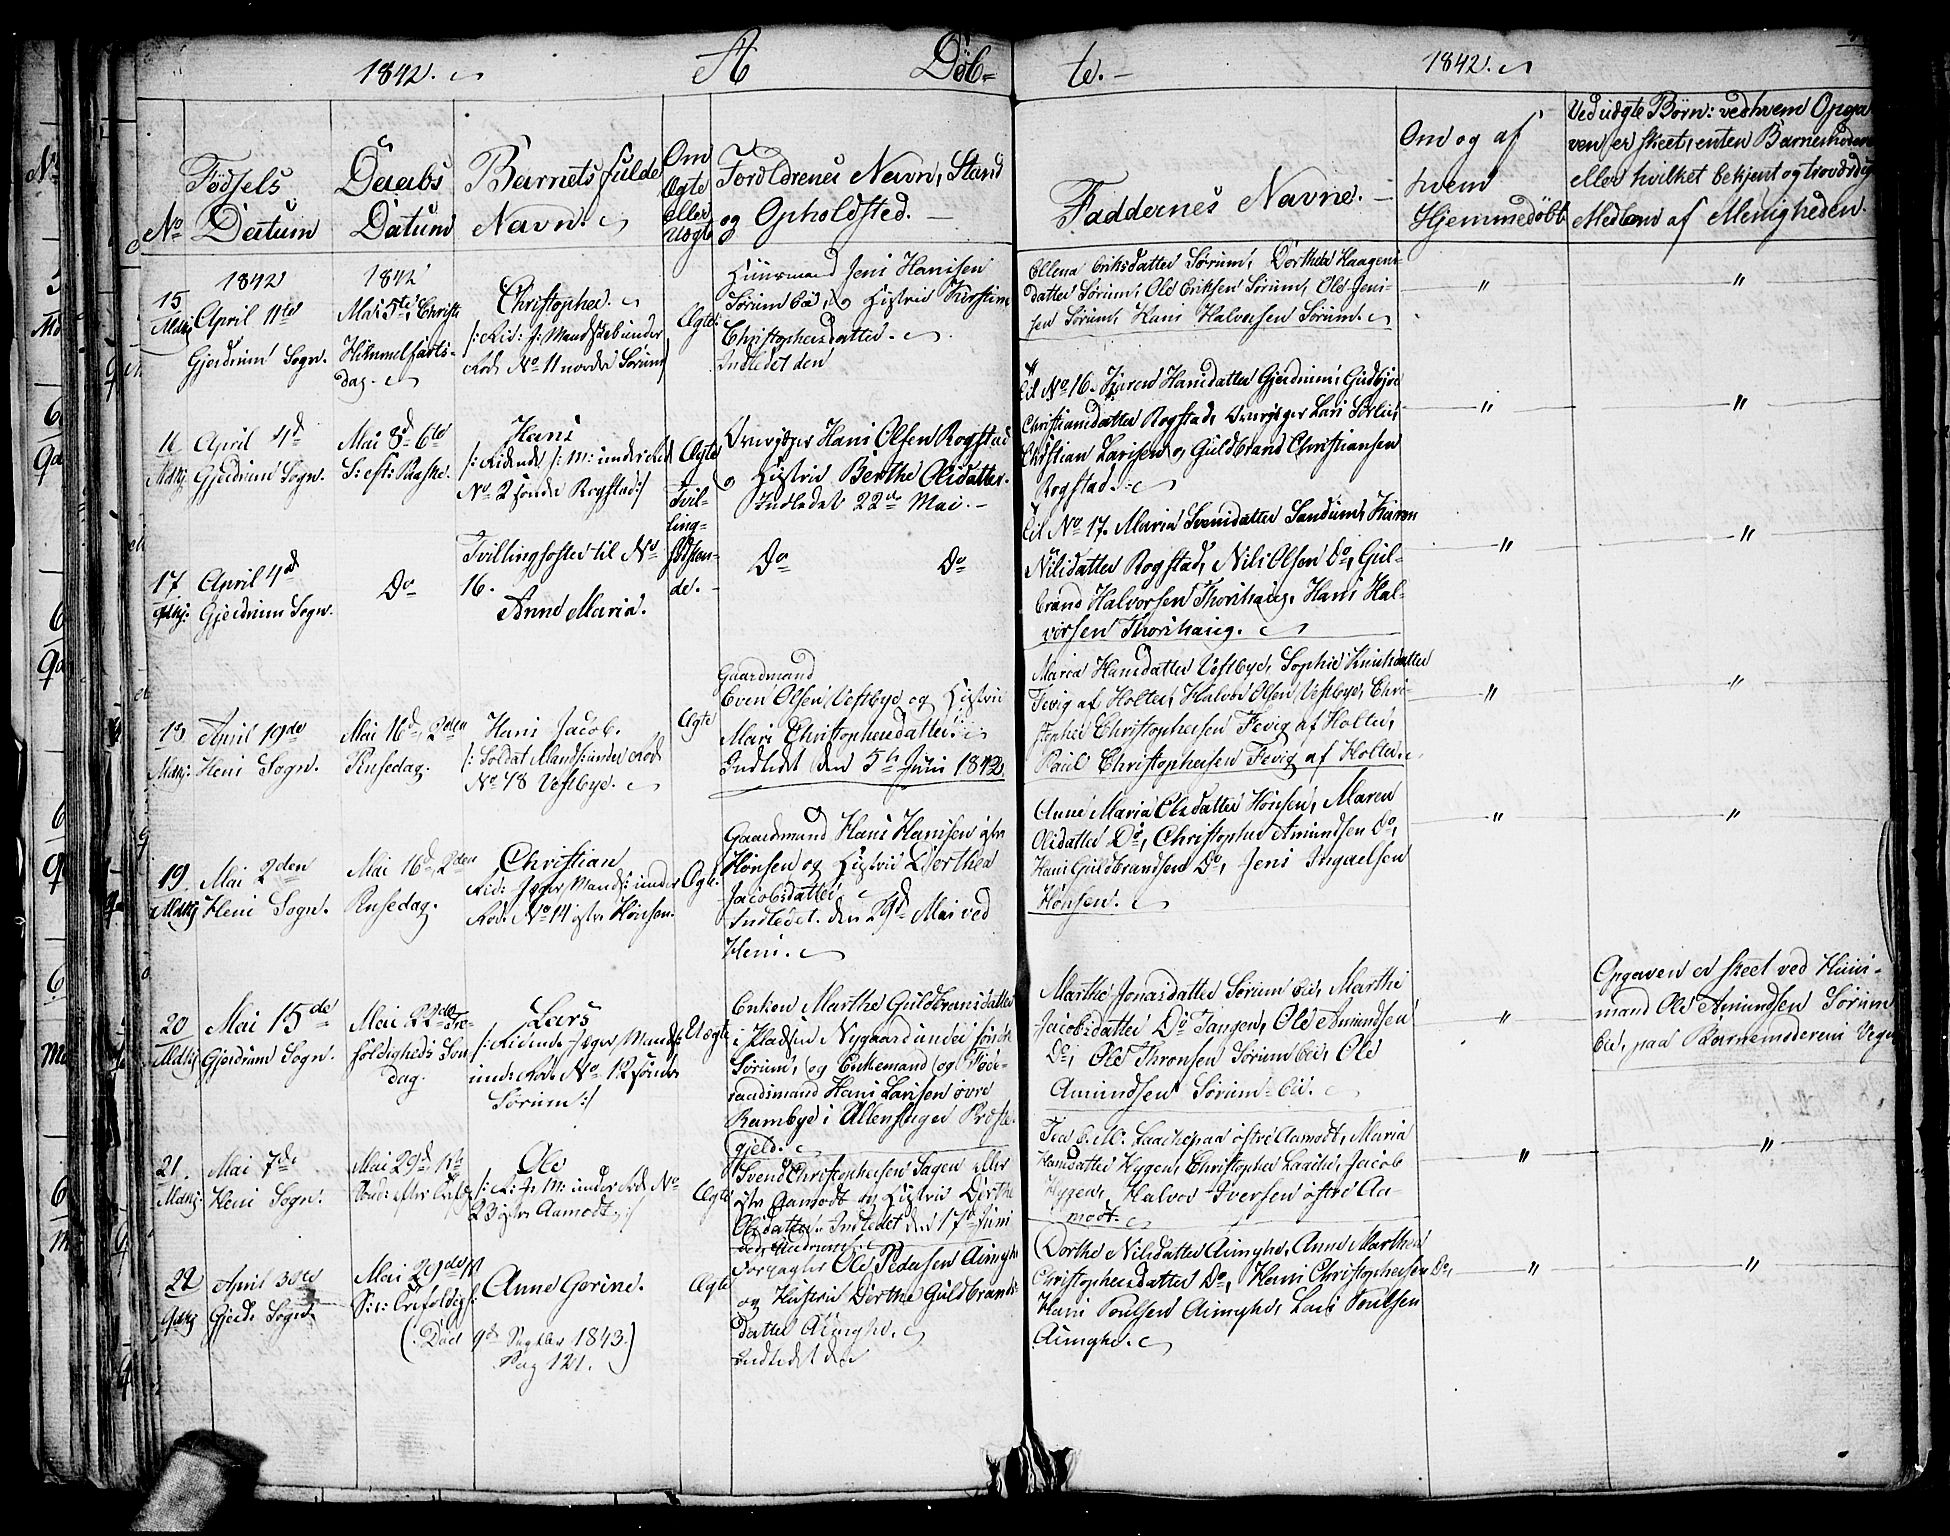 1842. A Döb= te. 1842.
No
Födsels Datum
Daabs Datum
Barnets fulde Navn.
Om Ægte eller Uægte
Forældrenes Navn, Stand og Opholdsted.
Faddernes Navne.
Om og af hvem Hjemmedöbt
Ved uægte Börn: ved hvem Opga
ven er skeet, enten Barnemoderen
eller hvilket bekjent og troværdigt
Medlem af Menigheden.
15
Mdkj
1842
April 11te
Gjerdrum Sogn.
1842
Mai 5te, Christi
Himmelfarts-
dag.
Christopher.
/: Rid: J: Mandskab under
Rode No 11 nordre Sörum
Ægte
Huusmand Jens Hansen
Sörum Eie, og Hustrue Kirstine
Christophersdatter.
Indledet den
Ellena Eriksdatter Sörum, Dorthea Haagens-
datter Sörum, Ole Eriksen Sörum, Ole Jen-
sen Sörum, Hans Halvorsen Sörum.
"
"
16
Mdkj.
April 4d
Gjerdrum Sogn.
Mai 8d 6te
S: eft: Paaske.
Hans
/: Ridende J: M: under Rod
No 2 söndre Rogstad :/
Ægte
Tvil-
ling-
födsen-
de.
Hans Olsen Rogstad
og Hustrue Berthe Olsdatter.
Indledet 22de Mai.
til No 16. Karen Hansdatter Gjerdrum, Gudbjör
Christiansdatter Rogstad, Lars Sörlie,
Christian Larsen og Guldbrand Christiansen
Rogstad.
"
"
17
qvkj:
April 4d
Gjerdrum Sogn.
Do
Tvillingsöster til No
16.
Anne Maria.
Do Do
til No 17. Maria Svensdatter Sandum, Karen
Nilsdatter Rogstad, Nils Olsen Do, Gul-
brand Halvorsen Thorshaug, Hans Hal-
vorsen Thorshaug.
"
"
18
Mdkj:
April 19de
Heni Sogn.
Mai 16d, 2den
Pinsedag.
Hans Jacob.
/: Soldat Mands: under Rod
No 48 Vestbye.
Ægte
Gaardmand
Even Olsen Vestbye og Hustrue
Mari Christophersdatter.
Indledt den 5te Juni 1842.
Maria Hansdatter Vestbye, Sophie Knudsdatter
Fevig af Holter, Halvor Olsen Vestbye, Chri-
stopher Christophersen Fevig af Holter,
Paul Christophersen Fevig af Holter.
"
"
19
Mdkj
Mai 2den
Heni Sogn.
Mai 16d, 2den
Pinsedag.
Christian
Rid: Jæger Mands: under
Rode No 14 östre Hönsen.
Ægte
Gaardmand Hans Hansen östre
Hönsen og Hustrue Dorthea
Jacobsdatter
Indledet den 29d Mai ved
Heni.
Anne Maria Olsdatter Hönsen, Maren
Olsdatter Do, Christopher Amundsen Do,
Hans Guldbrandsen Do, Jens Ingvelsen
Hönsen.
"
"
20
Mdkj
Mai 15de
Gjerdrum Sogn.
Mai 22de Tre-
foldigheds Son
dag.
Lars
/: Ridende Jæger Mands:
under Rode No 12 söndre
Sörum :/
Uægte
Enken Marthe Guldbrandsdatter
i Pladsen Nygaard under söndre
Sörum, og Enkemand og
Hans Larsen övre
Rambye i Ullensager Præste-
gjeld.
Marthe Jonasdatter Sörum Eie, Marthe
Jacobsdatter Do Tangen, Ole Amundsen
Do, Ole Thronsen Sörum Eie, Ole
Amundsen Sörum-Eie.
"
Opgaven er skeet ved Huus-
mand Ole Amundsen Sörum
Eie, paa Barnemoderens Vegne
21.
Mdkj
Mai 7de
Heni Sogn.
Mai 29d, 1ste
Sönd: efter Trefold
Ole
/: R: J: M: under Rode No
23 östre Aamodt :/
Ægte
Svend Christophersen Sagen eller
östre Aamodt og Hustrue Dorthe
Olsdatter. Indledet den 17d Juni
ved Gjerdrum.
C: M: Laache paa östre Aamodt, Maria
Hansdatter Hygen, Christopher Laache, Jacob
Hygen, Halvor Iversen östre Aa-
modt.
"
"
22
qvkj
April 30te
Gjerd: Sogn.
Mai 29de 1ste
S: e: Trefoldig:
Anne Gorine.
(Död 9d Septbr 1843.)
Pag 121.
Ægte
Forpagter Ole Pedersen Aimghe
og Hustrue Dorthe Guldbrands-
datter Aimghe.
Indledet den
Dorthe Nilsdatter Aimghe, Anne Marthea
Christophersdatter Do, Hans Christophersen Do,
Hans Poulsen Aimghe, Lars Poulsen
Aimghe.
"
"